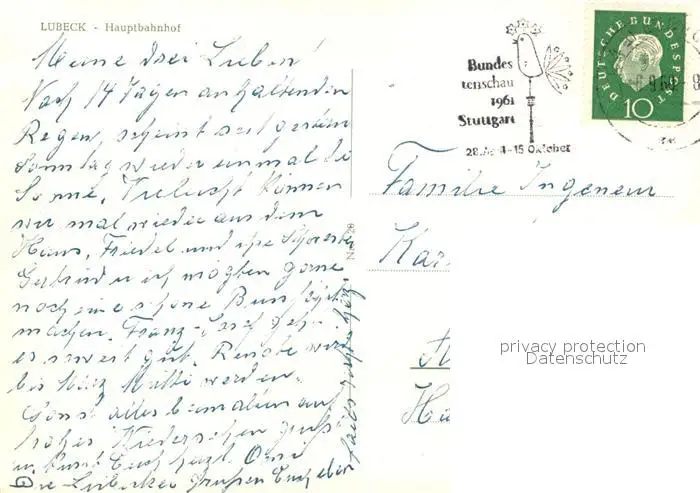 LÜBECK - Hauptbahnhof
Meine drei Lieben!
Nach 14 Tagen anhaltenden
Regen, scheint seit gestern
Sonntag wieder einmal die
Sonne. Vielleicht können
wir mal wieder aus dem
Haus, Friedel und ihre Schwester
Gertrud u ich mögten gerne
noch eine schöne Bus
machen. Franz-Josef geh
es soweit gut. Renate wird
bis März Mutti werden.
Sonst alles beim alten auf
frohes Wiedersehen grüßt
u. küsst Euch herzl. Omi
Die Lübecker grüßen Euch eben
falls
Bundes
tenschau
1961
Stuttgart
4-15 Oktober
DEUTSCHE BUNDESPOST
10
Familie Ingeneur
Kar
privacy protection
Datenschutz